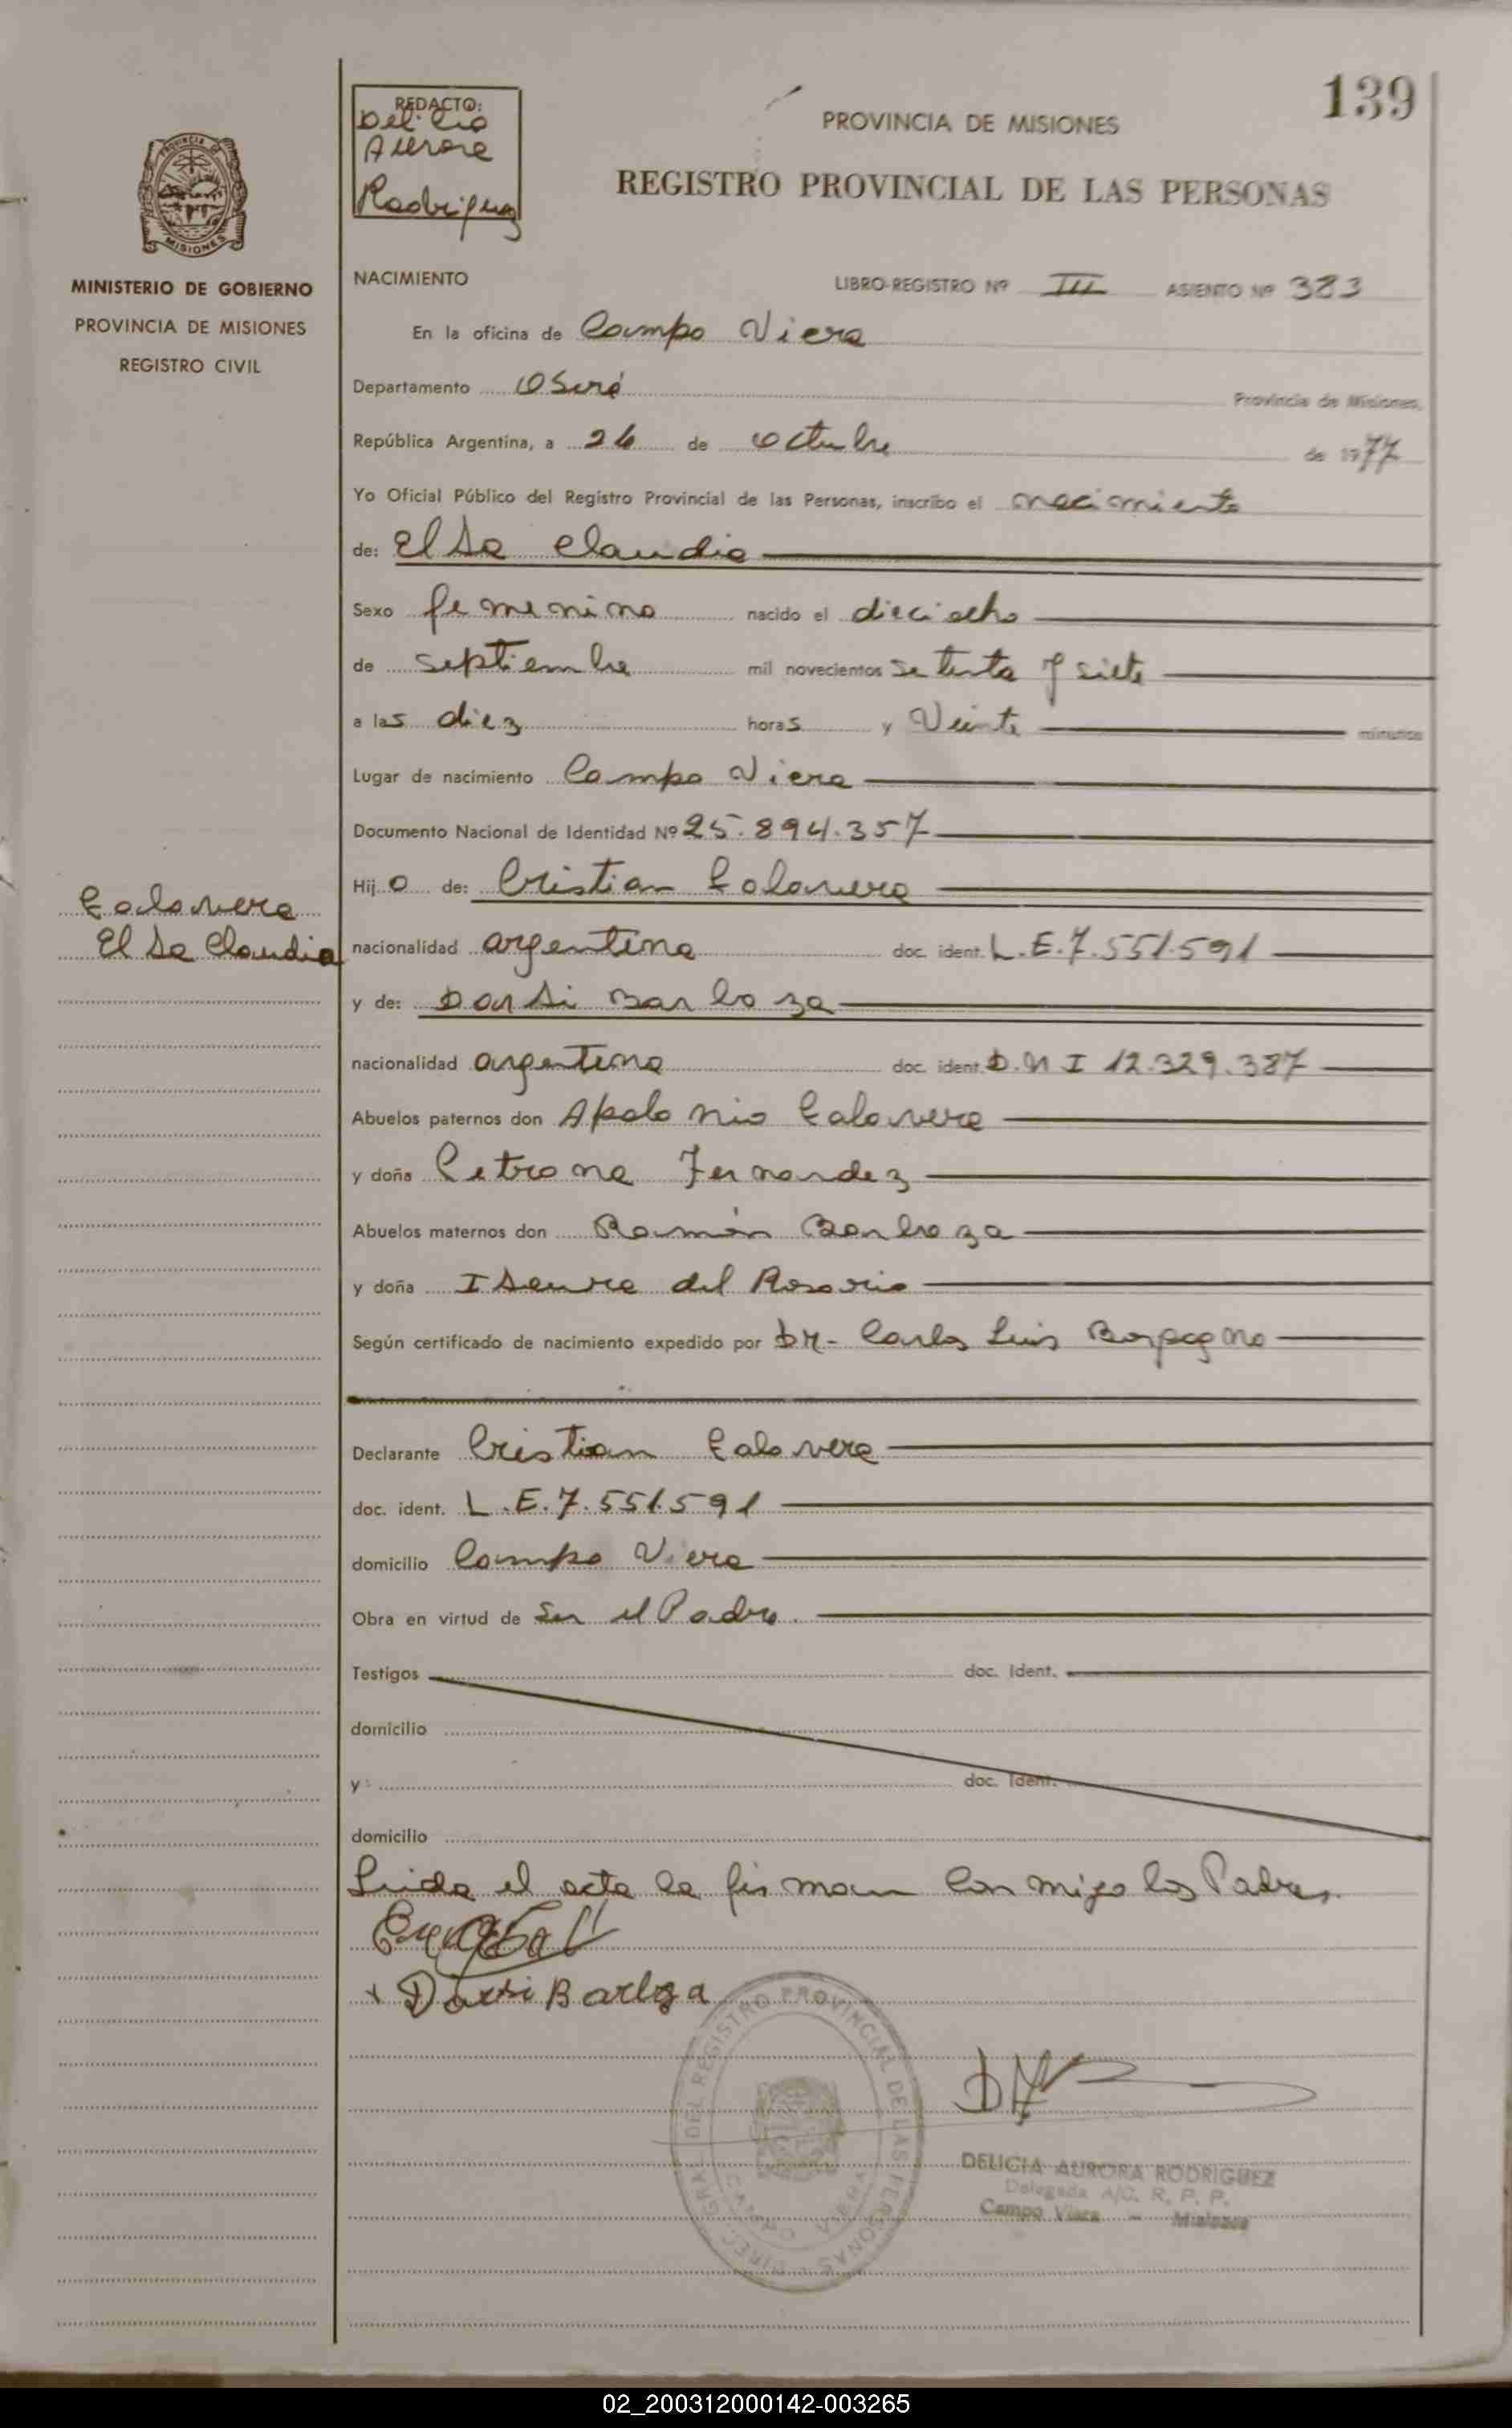 139
REDACTO:
Delicia
Aurora
Rodriguez
PROVINCIA DE MISIONES
REGISTRO PROVINCIAL DE LAS PERSONAS
MISIONES
MINISTERIO DE GOBIERNO
PROVINCIA DE MISIONES
REGISTRO CIVIL
NACIMIENTO LIBRO-REGISTRO Nº III ASIENTO Nº 383
En la oficina de Campo Viera
Departamento Oberá Provincia de Misiones,
República Argentina, a 26 de octubre de 1977
Yo Oficial Público del Registro Provincial de las Personas, inscribo el nacimiento
de: Elsa Claudia
Sexo femenino nacido el dieciocho
de septiembre mil novecientos setenta y siete
a las diez horas y Veinte minutos
Lugar de nacimiento Campo Viera
Documento Nacional de Identidad Nº 25.894.357
Hijo de: Cristian Galarza
nacionalidad argentina doc. ident. L.E.7.551.591
y de: Darsi Barboza
nacionalidad argentina doc. ident. D.N I 12.329.387
Abuelos paternos don Apolonio
y doña Petrona Fernandez
Abuelos maternos don Ramón Barboza
y doña del Rosario
Según certificado de nacimiento expedido por Dr- Carlos Luis
Declarante Cristian
doc. ident. L.E.7.551.591
domicilio Campo Viera
Obra en virtud de Ser el Padre.
Testigos doc. Ident.
domicilio
y: doc. Ident.
domicilio
Leida el acta la firman conmigo los Padres.
Elsa Claudia
x Darsi Barboza
DIREC. GRAL. DEL REGISTRO PROVINCIAL DE LAS PERSONAS
CAMPO VIERA
DELICIA AURORA RODRIGUEZ
Delegada A/C. R. P. P.
Campo Viera - Misiones
02_200312000142-003265